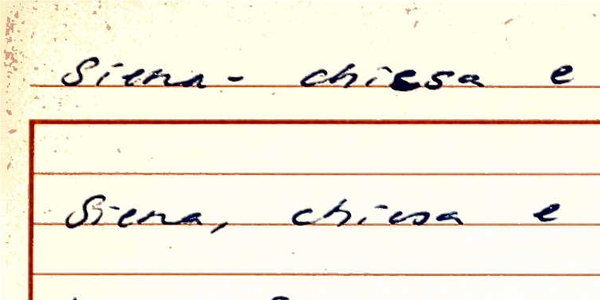 Siena - chiesa e
Siena, chiesa e